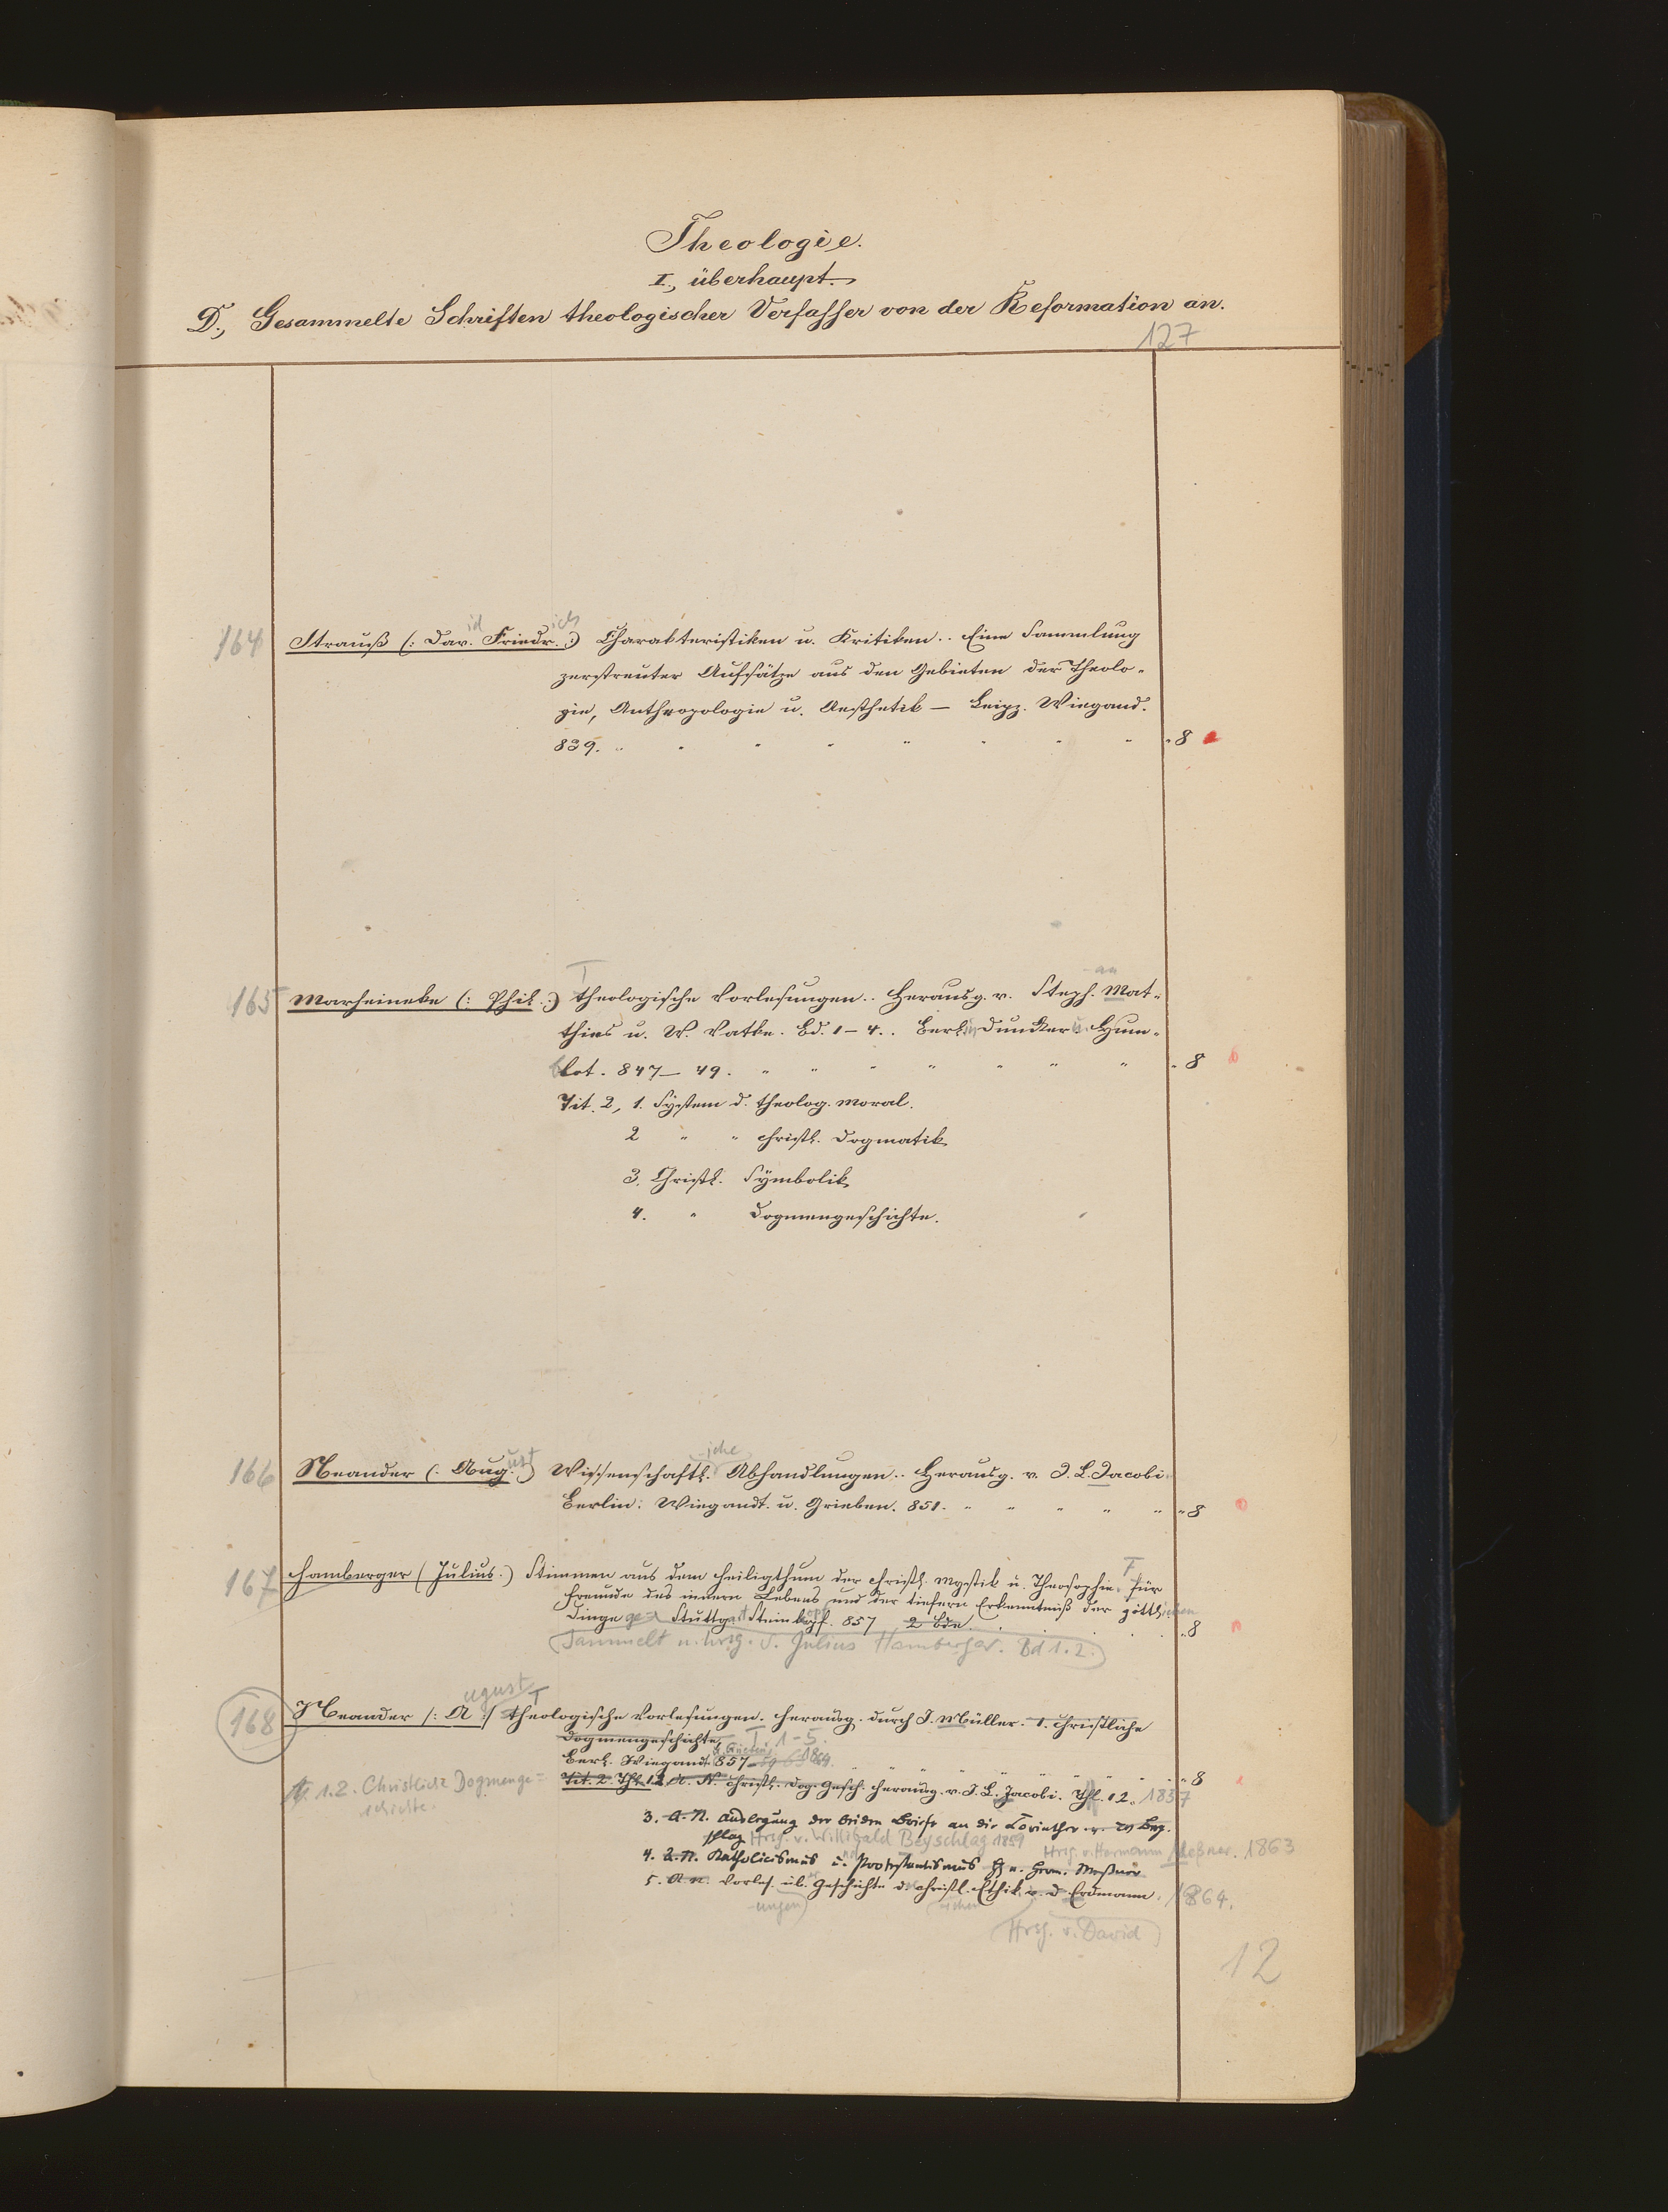 Theologie.
I., überhaupt.
D., Gesammelte Schriften theologischer Verfasser von der Reformation an.
127
164 Strauß (: David Friedrich :) Charakteristiken u. Kritiken.. Eine Sammlung
zerstreuter Aufsätze aus den Gebieten der Theolo-
gie, Anthropologie u. Aesthetik — Leipz. Wiegand.
839. " " " " " " " " 8
165 Marheineke (: Phil. :) Theologische Vorlesungen.. Herausg. v. Stephan Mat-
thies u. W. Vatke. Bd. 1–4.. Berlin Duncker u. Hum-
blot. 847–49. " " " " " " " 8
Tit. 2, 1. System d. theolog. Moral.
2 " " christl. Dogmatik
3. Christl. Symbolik
4. " Dogmengeschichte.
166 Neander (: August :) Wissenschaftliche Abhandlungen.. Herausg. v. J. L. Jacobi
Berlin: Wiegandt u. Grieben. 851. " " " " " " 8
167 Hamberger (Julius.) Stimmen aus dem Heiligthum der christl. Mystik u. Theosophie. Für
Freunde des innern Lebens und der tiefern Erkenntniß der göttlichen
Dinge ge= Stuttgart Steinkopf. 857 2 Bde. 8
sammelt u. hrsg. v. Julius Hamberger. Bd 1. 2.
168 Neander /: August :/ Theologische Vorlesungen. Herausg. durch J. Müller. 1. Christliche
Dogmengeschichte T. 1–5.
Berl. Wiegandt G. Grieben 857–1864. " " " " " " 8
1. 2. Christliche Dogmenge=
schichte.
Tit. 2. Thl. 1.2 A. N. Christl. Dog. Gesch. Herausg. v. J. L. Jacobi. Thl. 1 2. 1857
3. A. N. Auslegung der beiden Briefe an die Corinther v. W Bey-
schlag Hrsg. v. Willibald Beyschlag 1859
4. A. N. Katholicismus u. Protestantismus Hg v. Herm. Meßner Hrsg. v. Hermann Meßner. 1863
5. A. N. Vorlesungen üb. Geschichte d christlichen Ethik v. D Erdmann. 1864.
Hrsg. v. David
12